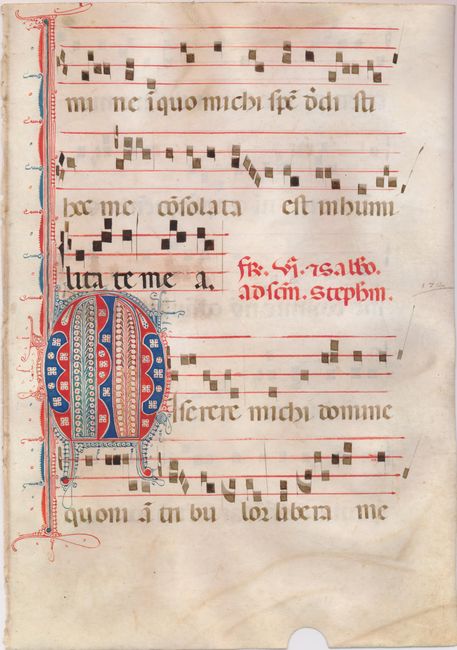 mi ne ī quo michi spē dedi sti
hec me cōsolata est in humi
lita te me a.
ad scm̄. stephm̄.
Miserere michi domine
quoni ā tri bu lor libera me